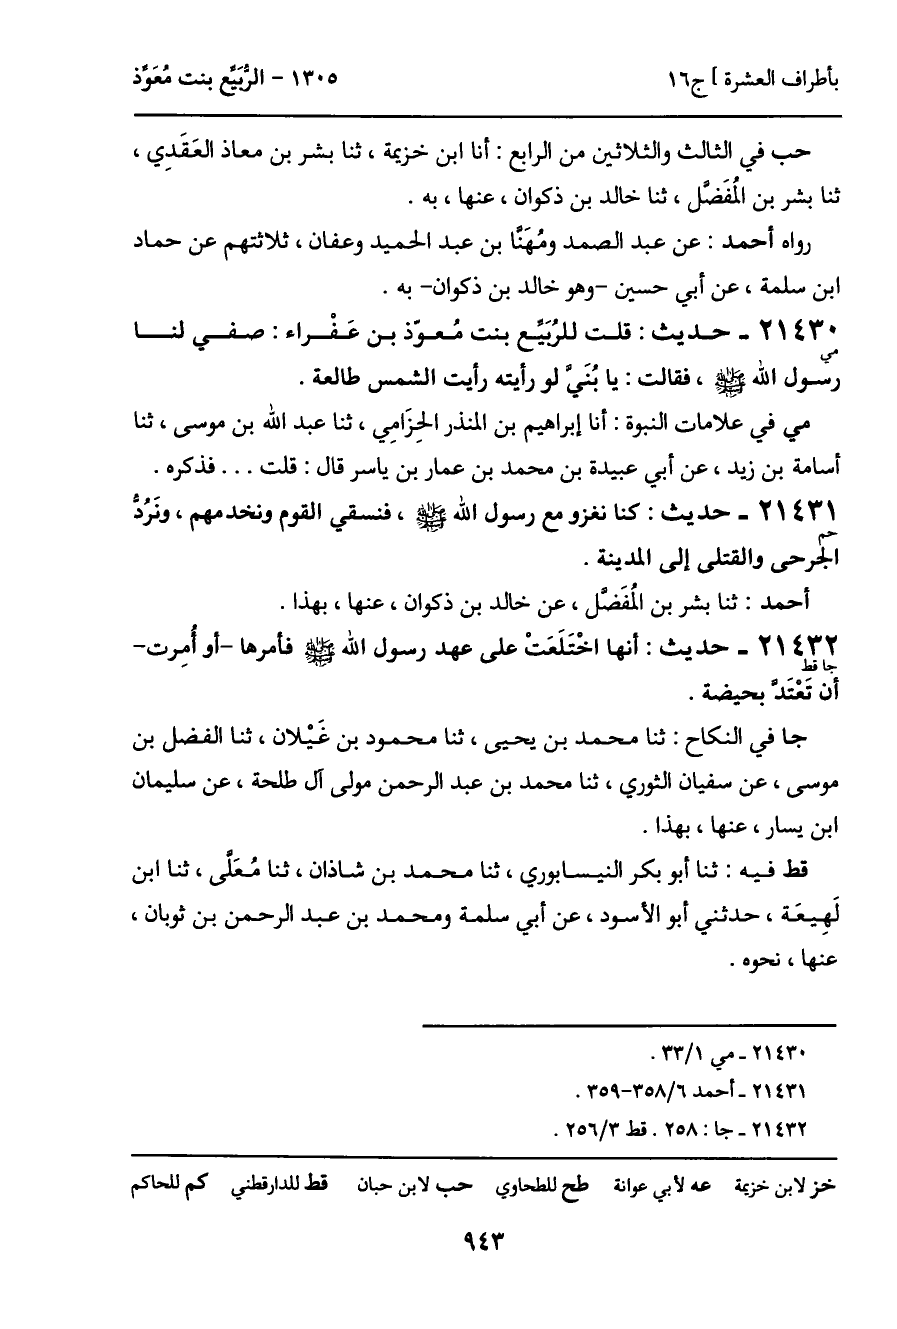 بأطراف العشرة ] ج١٦
١٣٠٥ - الرُّبَيِّع بنت مُعَوَّذ
حب في الثالث والثلاثين من الرابع : أنا ابن خزيمة ، ثنا بشر بن معاذ العَقَدِي ،
ثنا بشر بن المُفَضَّل ، ثنا خالد بن ذكوان ، عنها ، به .
رواه أحمد : عن عبد الصمد ومُهَنَّا بن عبد الحميد وعفان ، ثلاثتهم عن حماد
ابن سلمة ، عن أبي حسين -وهو خالد بن ذكوان- به .
٢١٤٣٠ ـ حديث : قلت للرُبَيِّع بنت مُعوّذ بن عَفْراء : صفي لنا
مي
رسول الله ﷺ ، فقالت : يا بُنَيَّ لو رأيته رأيت الشمس طالعة .
مي في علامات النبوة : أنا إبراهيم بن المنذر الحِزَامِي ، ثنا عبد الله بن موسى ، ثنا
أسامة بن زيد ، عن أبي عبيدة بن محمد بن عمار بن ياسر قال : قلت . . . فذكره .
٢١٤٣١ ـ حديث : كنا نغزو مع رسول الله ﷺ ، فنسقي القوم ونخدمهم ، ونَرُدُّ
حم
الجرحى والقتلى إلى المدينة .
أحمد : ثنا بشر بن المُفَضَّل ، عن خالد بن ذكوان ، عنها ، بهذا .
٢١٤٣٢ ـ حديث : أنها اخْتَلَعَتْ على عهد رسول الله ﷺ فأمرها -أو أُمِرت-
جا قط
أن تَعْتَدَّ بحيضة .
جا في النكاح : ثنا محمد بن يحيى ، ثنا محمود بن غَيْلان ، ثنا الفضل بن
موسى ، عن سفيان الثوري ، ثنا محمد بن عبد الرحمن مولى آل طلحة ، عن سليمان
ابن يسار ، عنها ، بهذا .
قط فيه : ثنا أبو بكر النيسابوري ، ثنا محمد بن شاذان ، ثنا مُعَلَّى ، ثنا ابن
لَهِيعَة ، حدثني أبو الأسود ، عن أبي سلمة ومحمد بن عبد الرحمن بن ثوبان ،
عنها ، نحوه .
٢١٤٣٠ ـ مي ٣٣/١ .
٢١٤٣١ ـ أحمد ٣٥٨/٦-٣٥٩ .
٢١٤٣٢ ـ جا : ٢٥٨ . قط ٢٥٦/٣ .
خز لابن خزيمة عه لأبي عوانة طح للطحاوي حب لابن حبان قط للدارقطني كم للحاكم
٩٤٣